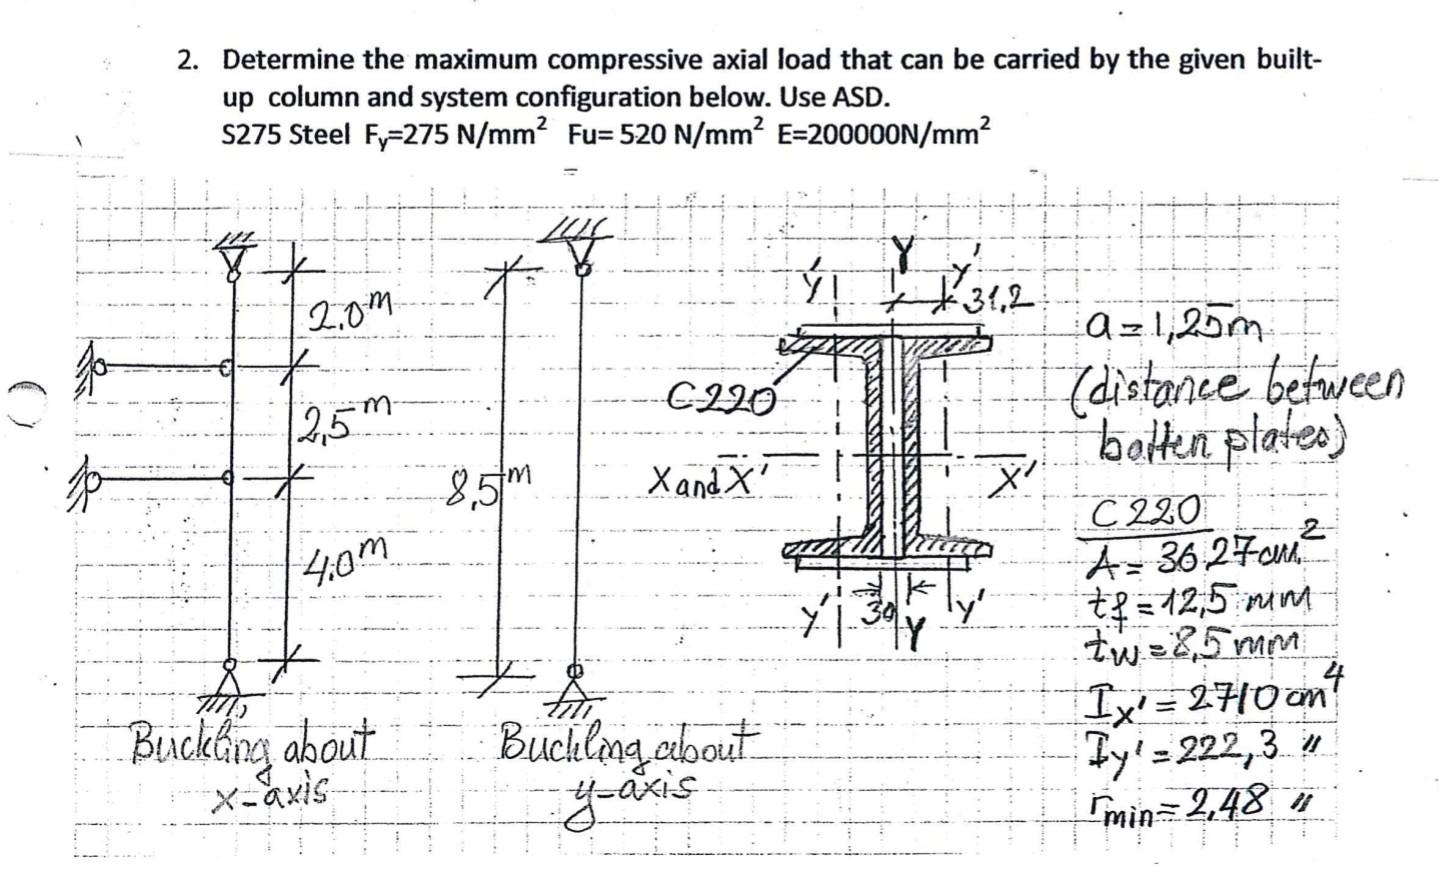 2. Determine the maximum compressive axial load that can be carried by the given built-
up column and system configuration below. Use ASD.
S275 Steel Fy=275 N/mm² Fu= 520 N/mm² E=200000N/mm²
2.0m
2,5m
4.0m
8,5m
Buckling about
x-axis
Buckling about
y-axis
y'
Y
y'
31,2
C220
X and X'
X'
y'
30
Y
y'
a=1,25m
(distance between
batten plates)
C220
A= 36.27cm²
tf=12,5 mm
tw=8,5 mm
Ix'= 2710 cm⁴
Iy'=222,3 "
rmin=2,48 "